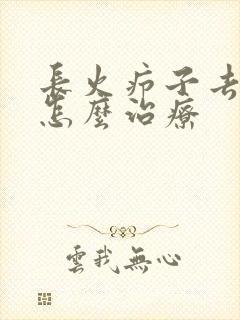 長火疖子
怎麼治療
雲我無心